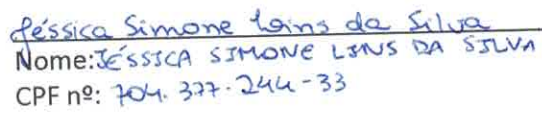 Jéssica Simone Lins da Silva
Nome: JÉSSICA SIMONE LINS DA SILVA
CPF nº: 704.377.244-33